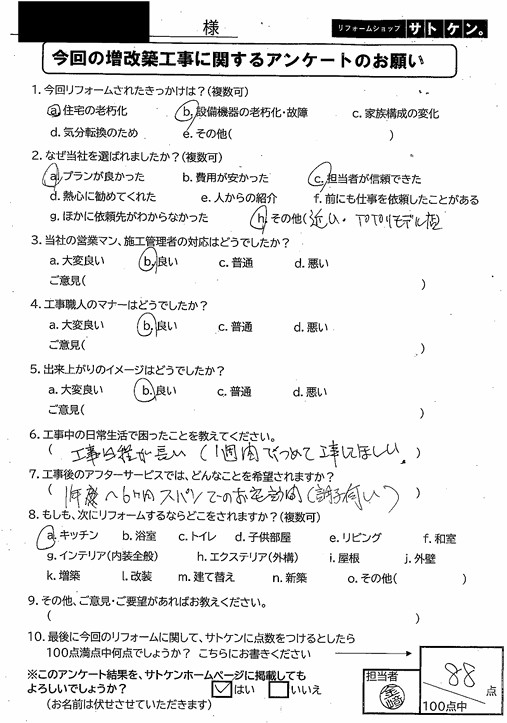 様
リフォームショップ サトケン。
今回の増改築工事に関するアンケートのお願い
1. 今回リフォームされたきっかけは？(複数可)
a. 住宅の老朽化 b. 設備機器の老朽化・故障 c. 家族構成の変化
d. 気分転換のため e. その他( )
2. なぜ当社を選ばれましたか？(複数可)
a. プランが良かった b. 費用が安かった c. 担当者が信頼できた
d. 熱心に勧めてくれた e. 人からの紹介 f. 前にも仕事を依頼したことがある
g. ほかに依頼先がわからなかった h. その他(近い・TOTOリモデル店
3. 当社の営業マン、施工管理者の対応はどうでしたか？
a. 大変良い b. 良い c. 普通 d. 悪い
ご意見( )
4. 工事職人のマナーはどうでしたか？
a. 大変良い b. 良い c. 普通 d. 悪い
ご意見( )
5. 出来上がりのイメージはどうでしたか？
a. 大変良い b. 良い c. 普通 d. 悪い
ご意見( )
6. 工事中の日常生活で困ったことを教えてください。
( 工事日程が長い (1週間でつめて工事してほしい )
7. 工事後のアフターサービスでは、どんなことを希望されますか？
( 1年度へ6ヶ月スパンでのお宅訪問(調子伺い) )
8. もしも、次にリフォームするならどこをされますか？(複数可)
a. キッチン b. 浴室 c. トイレ d. 子供部屋 e. リビング f. 和室
g. インテリア(内装全般) h. エクステリア(外構) i. 屋根 j. 外壁
k. 増築 l. 改装 m. 建て替え n. 新築 o. その他( )
9. その他、ご意見・ご要望があればお教えください。
( )
10. 最後に今回のリフォームに関して、サトケンに点数をつけるとしたら
100点満点中何点でしょうか？ こちらにお書きください
※このアンケート結果を、サトケンホームページに掲載しても
よろしいでしょうか？ はい いいえ
(お名前は伏せさせていただきます)
担当者
88 点
100点中